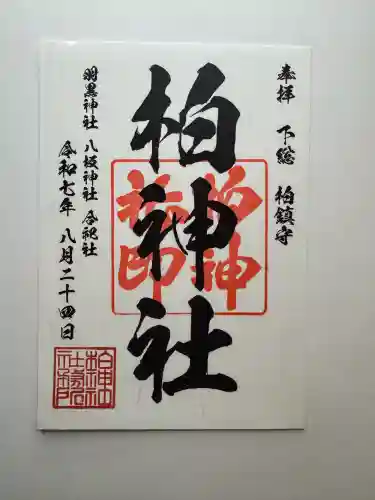 奉拝 下総 柏鎮守
柏神社
柏神社印
羽黒神社 八坂神社 合祀社
令和七年 八月二十四日